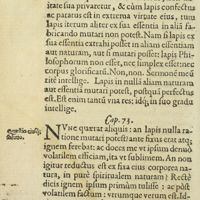 tate sua priuaretur, & cùm lapis confectus
ac paratus est in extrema virtute eius, tum
lapis iterum alter ex sua essentia in alia fa-
bricando mutari non potest. Nam si lapis ex
sua essentia extrahi posset in aliam essentiam
aut naturam, ac mutari, sic posset: lapis Phi-
losophorum non esset, nec simplex esset: nec
corpus glorificatũ. Non, non. Sermonẽ meũ
sic intellige. Lapis in nulla aliam naturam
aut essentiã mutari potest, postquã perfectus
est. Est enim tantũ vna res: idq; in suo gradu
intellige.
Cap. 73.
NVnc quærat aliquis: an lapis in nulla ra-
tione mutari potest: ante fixus erat atq;
ignem ferebat: ac doces me vt ipsum denuò
volatilem efficiam, ita vt sublimem. An non
igitur reductus est ex fixa eius corporea na-
tura, in purè spiritualem naturam? Rectè
dicis ignem ipsum primùm tulisse: ac post
volatilem factum: verumque verum est. Id-